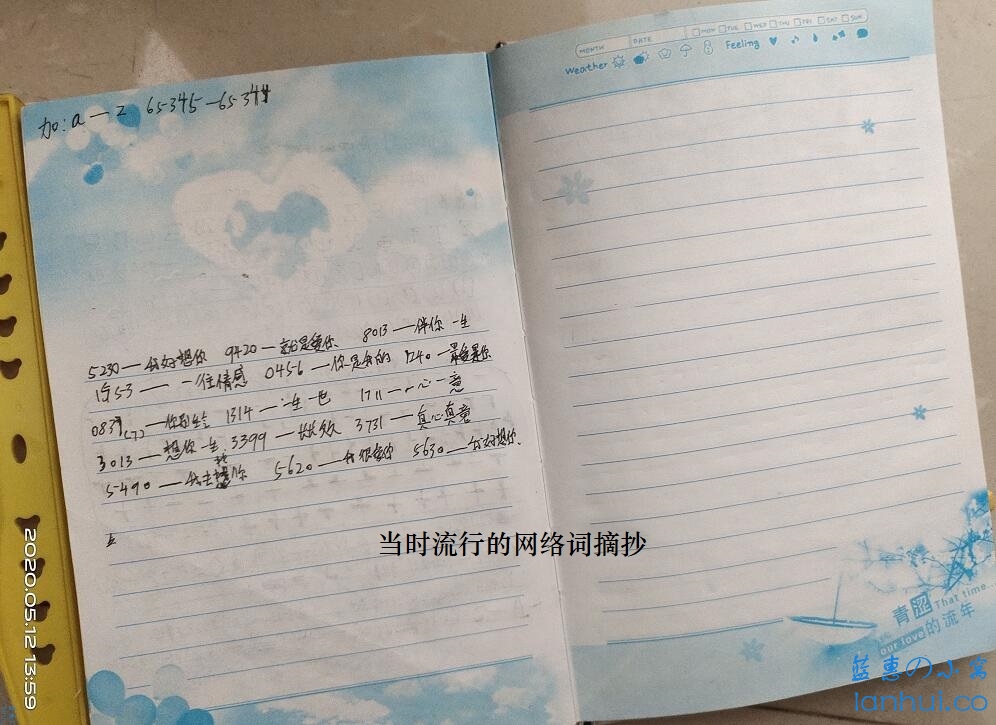 加:a—z 65345—65344
5230—我好想你 9420—就是爱你 8013—伴你一生
1553—一往情感 0456—你是我的 1240—最爱是你
0837(7)—你别生气 1314—一生一世 1711—一心一意
3013—想你一生 3399—长长久久 3731—真心真意
5490—我去找你 5620—我很爱你 5630—我好想你、
当时流行的网络词摘抄
MONTH DATE MON TUE WED THU FRI SAT SUN
Weather Feeling
青涩的流年
That time...
our love
2020.05.12 13:59
蓝惠の小窝
lanhui.co